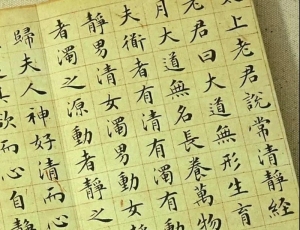 太上老君說常清靜經
老君曰大道無形生育
月大道無名長養萬物
夫術者有清有濁有動
靜男清女濁男動女
者濁之源動者靜之
歸夫人神好清而心
其欲而心自靜